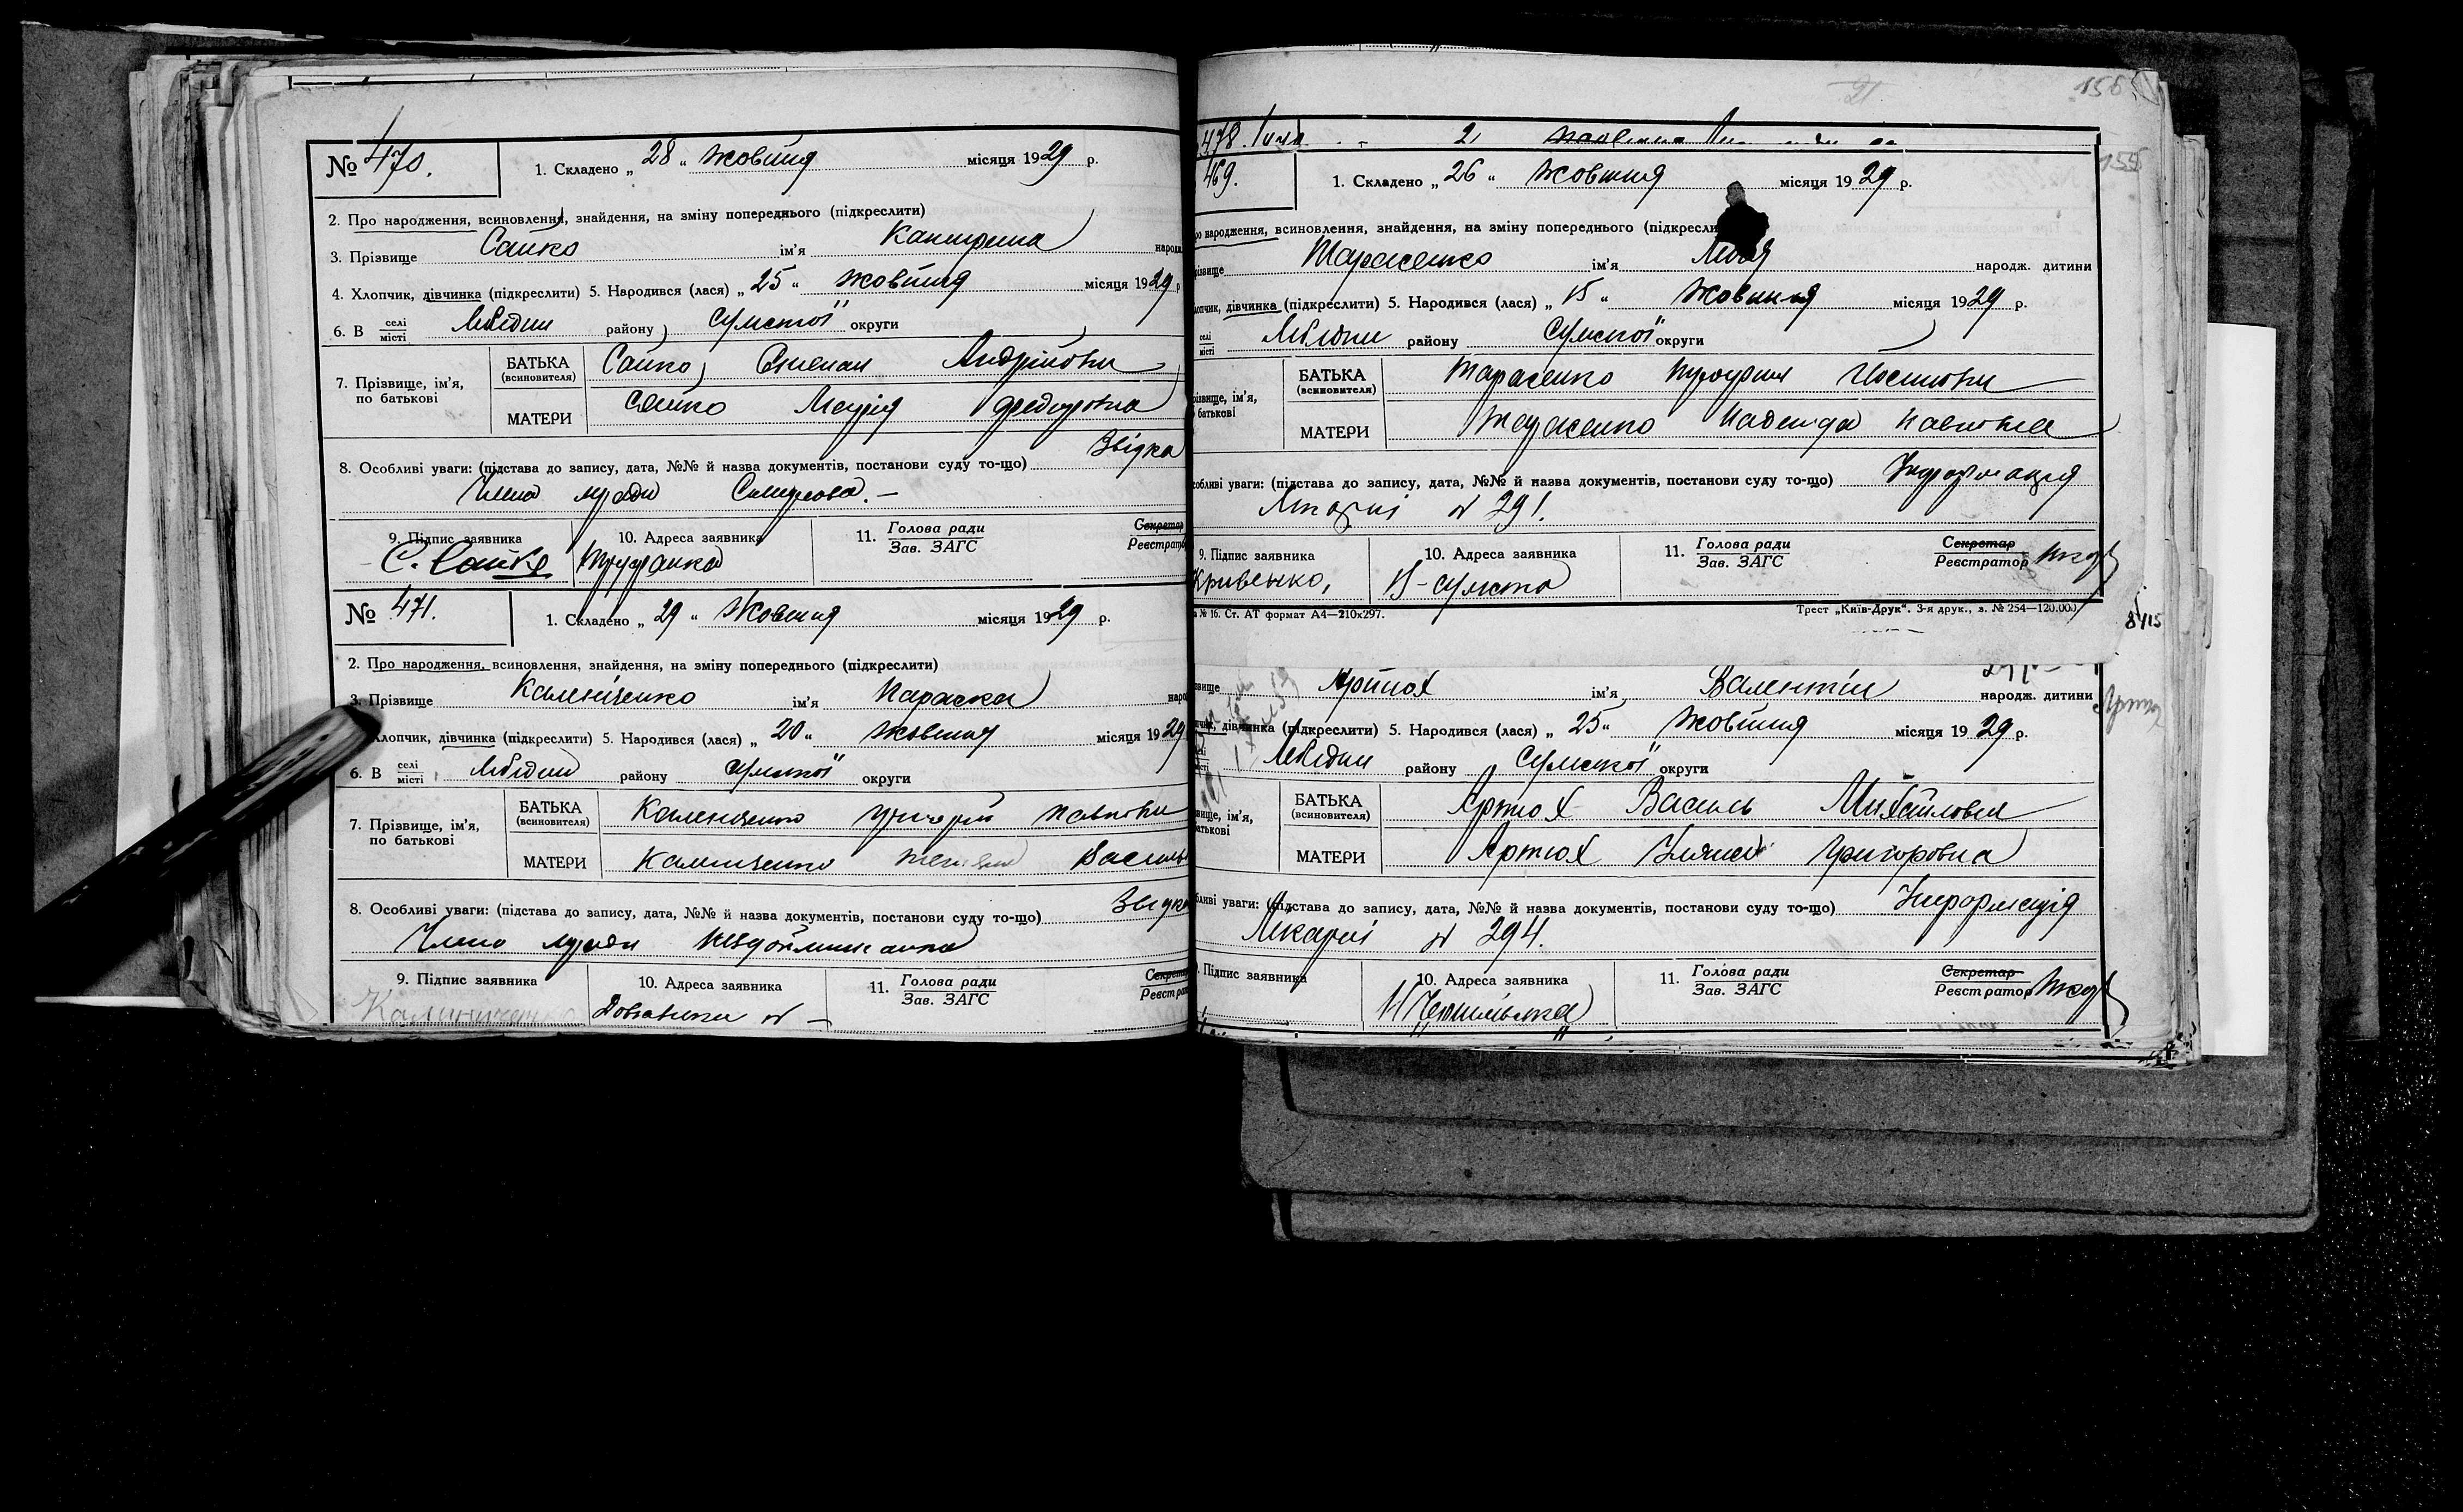 № 470. 1. Складено „ 28 “ жовтня місяця 1929 р.
2. Про народження, всиновлення, знайдення, на зміну попереднього (підкреслити)
3. Прізвище Сайко ім’я Катерина народж
4. Хлопчик, дівчинка (підкреслити) 5. Народився (лася) „ 25 “ жовтня місяця 1929 р
6. В селі місті Лебедин району Сумської округи
7. Прізвище, ім’я, по батькові
БАТЬКА (всиновителя) Сайко Степан Андрійович
МАТЕРИ Сайко Марія Федоровна
8. Особливі уваги: (підстава до запису, дата, №№ й назва документів, постанови суду то-що) Звідка
Члена м/ради
9. Підпис заявника 10. Адреса заявника 11. Голова ради Зав. ЗАГС Секретар Реєстратор
С. Сайко
№ 471. 1. Складено „ 29 “ Жовтня місяця 1929 р.
2. Про народження, всиновлення, знайдення, на зміну попереднього (підкреслити)
3. Прізвище Калениченко ім’я Параска наро
Хлопчик, дівчинка (підкреслити) 5. Народився (лася) „ 20 “ жовтня місяця 1929
6. В селі місті Лебедин району Сумської округи
7. Прізвище, ім’я, по батькові
БАТЬКА (всиновителя) Калениченко Григорій Павлович
МАТЕРИ Калениченко Василь
8. Особливі уваги: (підстава до запису, дата, №№ й назва документів, постанови суду то-що) Звідка
Члена м/ради
9. Підпис заявника 10. Адреса заявника 11. Голова ради Зав. ЗАГС Секретар Реєстра
156
478.
469. 1. Складено „ 26 “ Жовтня місяця 1929 р.
ро народження, всиновлення, знайдення, на зміну попереднього (підкресли
різвище Тарасенко ім’я Лідія народж. дитини
опчик, дівчинка (підкреслити) 5. Народився (лася) „ 15 “ Жовтня місяця 1929 р.
селі місті Лебедин району Сумської округи
різвище, ім’я, батькові
БАТЬКА (всиновителя) Тарасенко Йосипович
МАТЕРИ Тарасенко Надежда Павловна
собливі уваги: (підстава до запису, дата, №№ й назва документів, постанови суду то-що) Інформація
Лікарні № 291.
9. Підпис заявника 10. Адреса заявника 11. Голова ради Зав. ЗАГС Секретар Реєстратор
Кривенко, 15-Сумська
№ 16. Ст. АТ формат А4—210х297. Трест „Київ-Друк“. 3-я друк., з. № 254—120.000
вище Артюх ім’я Валентін народж. дитини
пчик, дівчинка (підкреслити) 5. Народився (лася) „ 25 “ Жовтня місяця 1929 р.
селі місті Лебедин району Сумської округи
вище, ім’я, батькові
БАТЬКА (всиновителя) Артюх Василь Михайлович
МАТЕРИ Артюх Уляна Григоровна
бливі уваги: (підстава до запису, дата, №№ й назва документів, постанови суду то-що) Інформація
Лікарні № 294.
Підпис заявника 10. Адреса заявника 11. Голова ради Зав. ЗАГС Секретар Реєстратор